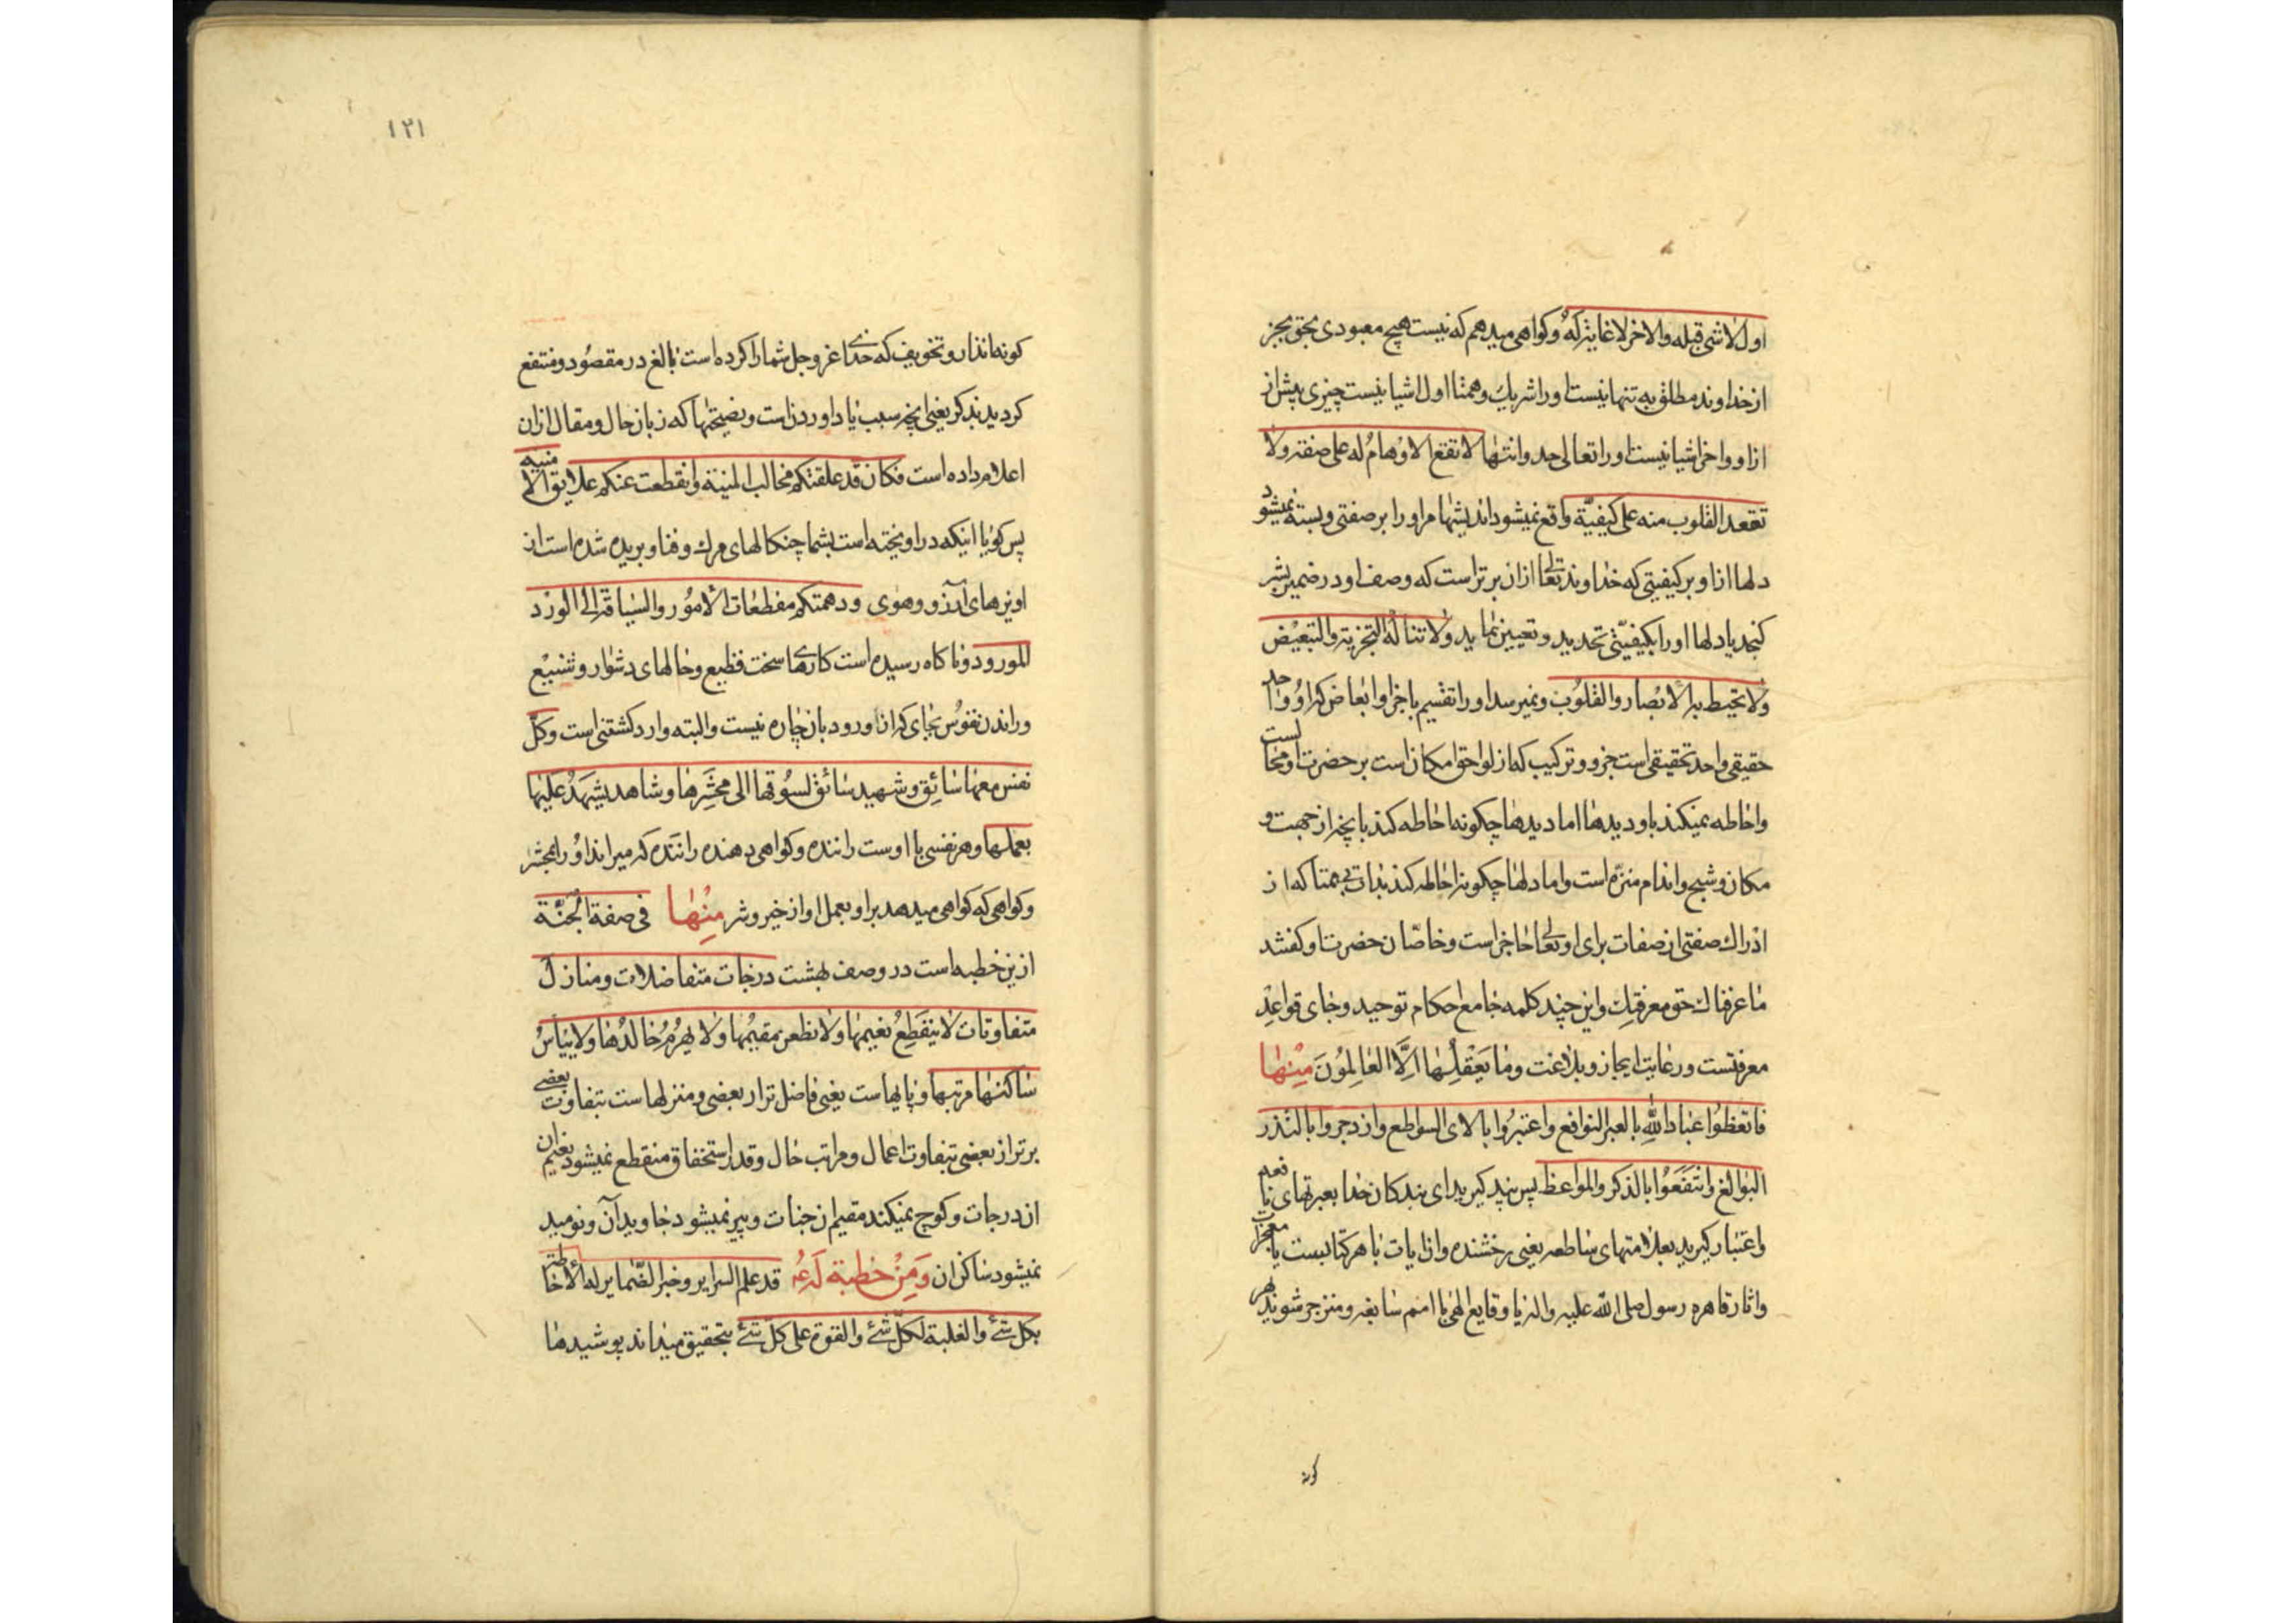 اول لا شی قبله والاخر لا غایة له و کواهی میدهم که نیست هیچ معبودی بحق بجز
از خداوند مطلق به تنها نیست اورا شریک و همتا اول اشیا نیست چیزی پیش از
ازاو و اخر اشیا نیست اورا تعالی حد و انتها لا تقع الاوهام له علی صفة ولا
تعقد القلوب منه علی کیفیّة واقع نمیشود اندیشها مراورا بر صفتی و بسته نمیشود
دلها ازاو بر کیفیتی که خداوند تعالی ازان برتر است که وصف او در ضمیر بشر
کنجد یا دلها اورا بکیفیّتی تحدید و تعیین نماید ولا تناله التجزیة والتبعیض
ولا تحیط به الابصار والقلوب و نمیرسد اورا تقسیم باجزا و ابعاض که او واحد
حقیقی واحد تحقیقی است جزو و ترکیب که از لواحق امکان است بر حضرت او محالست
واحاطه نمیکند باو دیدها اما دیدها چکونه احاطه کند بانچه از جهت و
مکان و شبح واندام منزّه است واما دلها چکونه احاطه کند بذات بی همتا که از
ادراک صفتی از صفات برای او تعالی عاجز است و خاصّان حضرت او کفتند
ما عرفناک حق معرفتک و این چند کلمه جامع احکام توحید و حاوی قواعد
معرفتست و رعایت ایجاز و بلاغت وما یعقلها الّا العالمون منها
فاتعظوا عباد الله بالعبر النوافع واعتبروا بالای السواطع وازدجروا بالنذر
البوالغ وانتفعوا بالذکر والمواعظ پس پند کیرید ای بندکان خدا بعبرتهای نافعه
واعتبار کیرید بعلامتهای ساطعه یعنی رخشنده وان ایات باهر کتابست یا معجزات
واثار قاهره رسول صلی الله علیه واله یا وقایع الهی با امم سابقه و منزجر شوید بهر
کونه
۱۲۱
کونه انذار و تخویف که خدای عز و جل شما را کرده است بالغ در مقصود و منتفع
کردید بذکر یعنی انچه سبب یاد اوردن است و نصیحتها که زبان حال و مقال ازان
اعلام داده است فکان قد علقتکم مخالب المنیة وانقطعت عنکم علایق الامنیه
پس کویا اینکه در اویخته است بشما چنکالهای مرک و فنا و بریده شده است از
اویزهای آرزو و هوی ودهمتکم مفظعات الأمور والسیاقة الی الورد
المورود و ناکاه رسیده است کارهای سخت فظیع و حالهای دشوار و شنیع
و راندن نفوس بجای که ازان ورود بان چاره نیست و البته وارد کشتنی است وکل
نفس معها سائق وشهید سائق یسوقها الی محشرها وشاهد یشهد علیها
بعملها و هر نفسی با اوست راننده و کواهی دهنده راننده که میراند او را بمحشر
و کواهی که کواهی میدهد بر او بعمل او از خیر و شر منها فی صفة الجنّة
ازین خطبه است در وصف بهشت درجات متفاضلات ومنازل
متفاوتات لا ینقطع نعیمها ولا یظعن مقیمها ولا یهرم خالدها ولا ییأس
ساکنها مرتبها و پایهاست یعنی فاضل تر از بعضی و منزلهاست بتفاوت بعضی
برتر از بعضی بتفاوت اعمال و مراتب حال و قدر استحقاق منقطع نمیشود نعیم ان
از درجات و کوچ نمیکند مقیم ان جنات و پیر نمیشود جاویدان و نومید
نمیشود ساکن ان ومن خطبة له ع قد علم السرایر وخبر الضمایر له الاحاطة
بکل شئ والغلبة لکل شئ والقوة علی کل شئ بتحقیق میداند پوشیدها